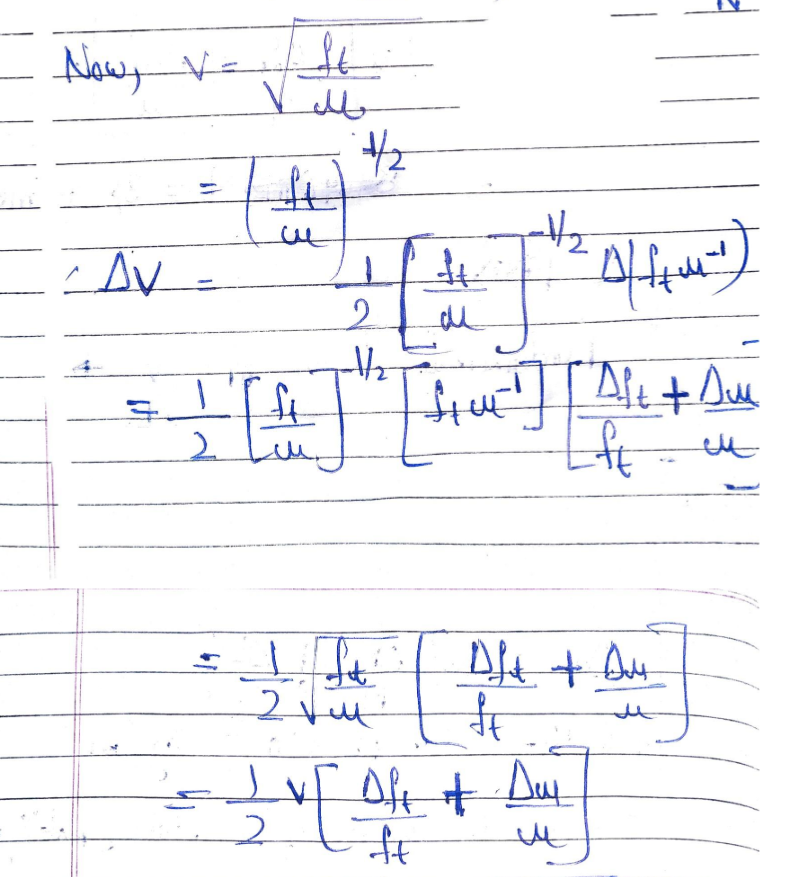 Now, V = √(ft/μ)
= (ft/μ)^1/2
∴ ΔV = 1/2 [ft/μ]^-1/2 Δ(ft μ^-1)
= 1/2 [ft/μ]^-1/2 [ft μ^-1] [Δft/ft + Δμ/μ
= 1/2 √(ft/μ) [Δft/ft + Δμ/μ]
= 1/2 V [Δft/ft + Δμ/μ]